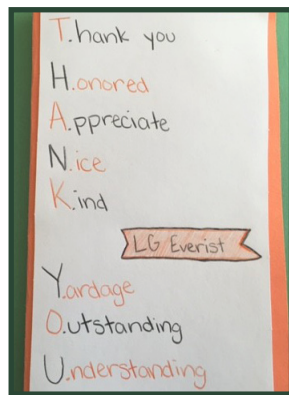 T.hank you
H.onored
A.ppreciate
N.ice
K.ind
LG Everist
Y.ardage
O.utstanding
U.nderstanding